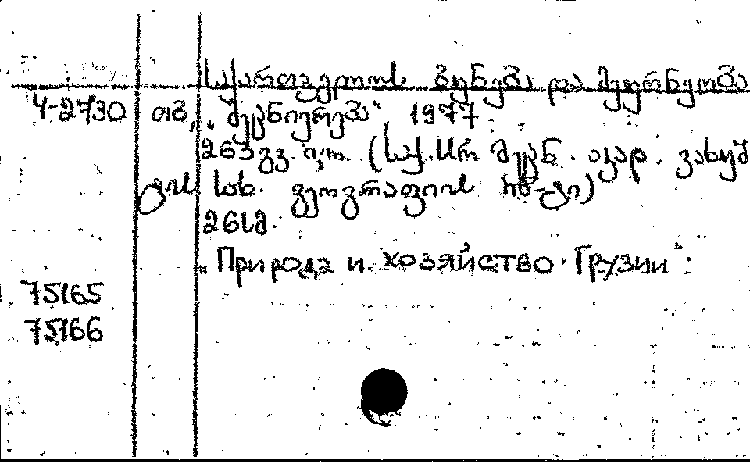 საქართველოს ბუნება და მეურნეობა
4-2730 თბ, „მეცნიერება“, 1977.
263 გვ. ი.ო. (საქ. სსრ მეცნ. აკად. ვახუშ
ტის სახ. გეოგრაფიის ინ-ტი)
261მ.
„Природа и хозяйство Грузии“.
75165
75166